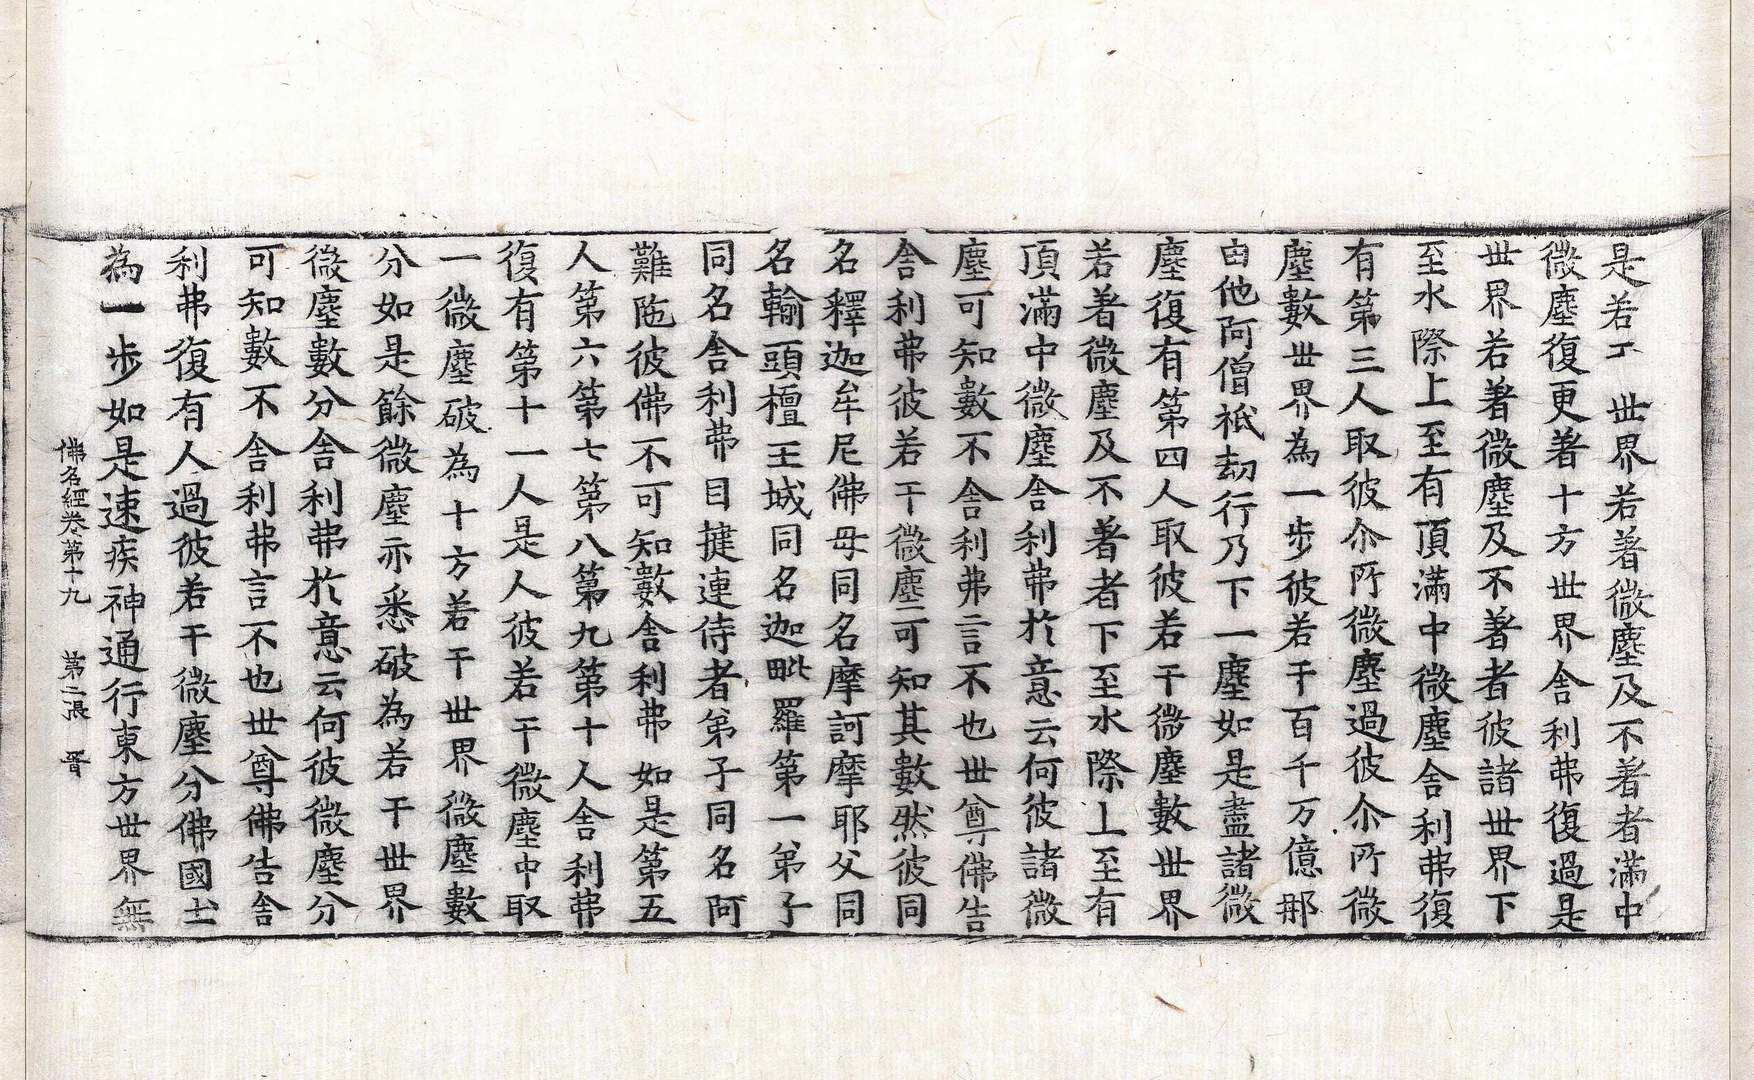 是若干世界若著微塵及不著者滿中
微塵復更著十方世界舍利弗復過是
世界若著微塵及不著者彼諸世界下
至水際上至有頂滿中微塵舍利弗復
有第三人取彼尒所微塵過彼尒所微
塵數世界為一步彼若干百千万億那
由他阿僧祇劫行乃下一塵如是盡諸微
塵復有第四人取彼若干微塵數世界
若著微塵及不著者下至水際上至有
頂滿中微塵舍利弗於意云何彼諸微
塵可知數不舍利弗言不也世尊佛告
舍利弗彼若干微塵可知其數然彼同
名釋迦牟尼佛母同名摩訶摩耶父同
名輸頭檀王城同名迦毗羅第一弟子
同名舍利弗目揵連侍者弟子同名阿
難陁彼佛不可知數舍利弗如是第五
人第六第七第八第九第十人舍利弗
復有第十一人是人彼若干微塵中取
一微塵破為十方若干世界微塵數
分如是餘微塵亦悉破為若干世界
微塵數分舍利弗於意云何彼微塵分
可知數不舍利弗言不也世尊佛告舍
利弗復有人過彼若干微塵分佛國土
為一步如是速疾神通行東方世界無
佛名經卷第十九 第二張 晋